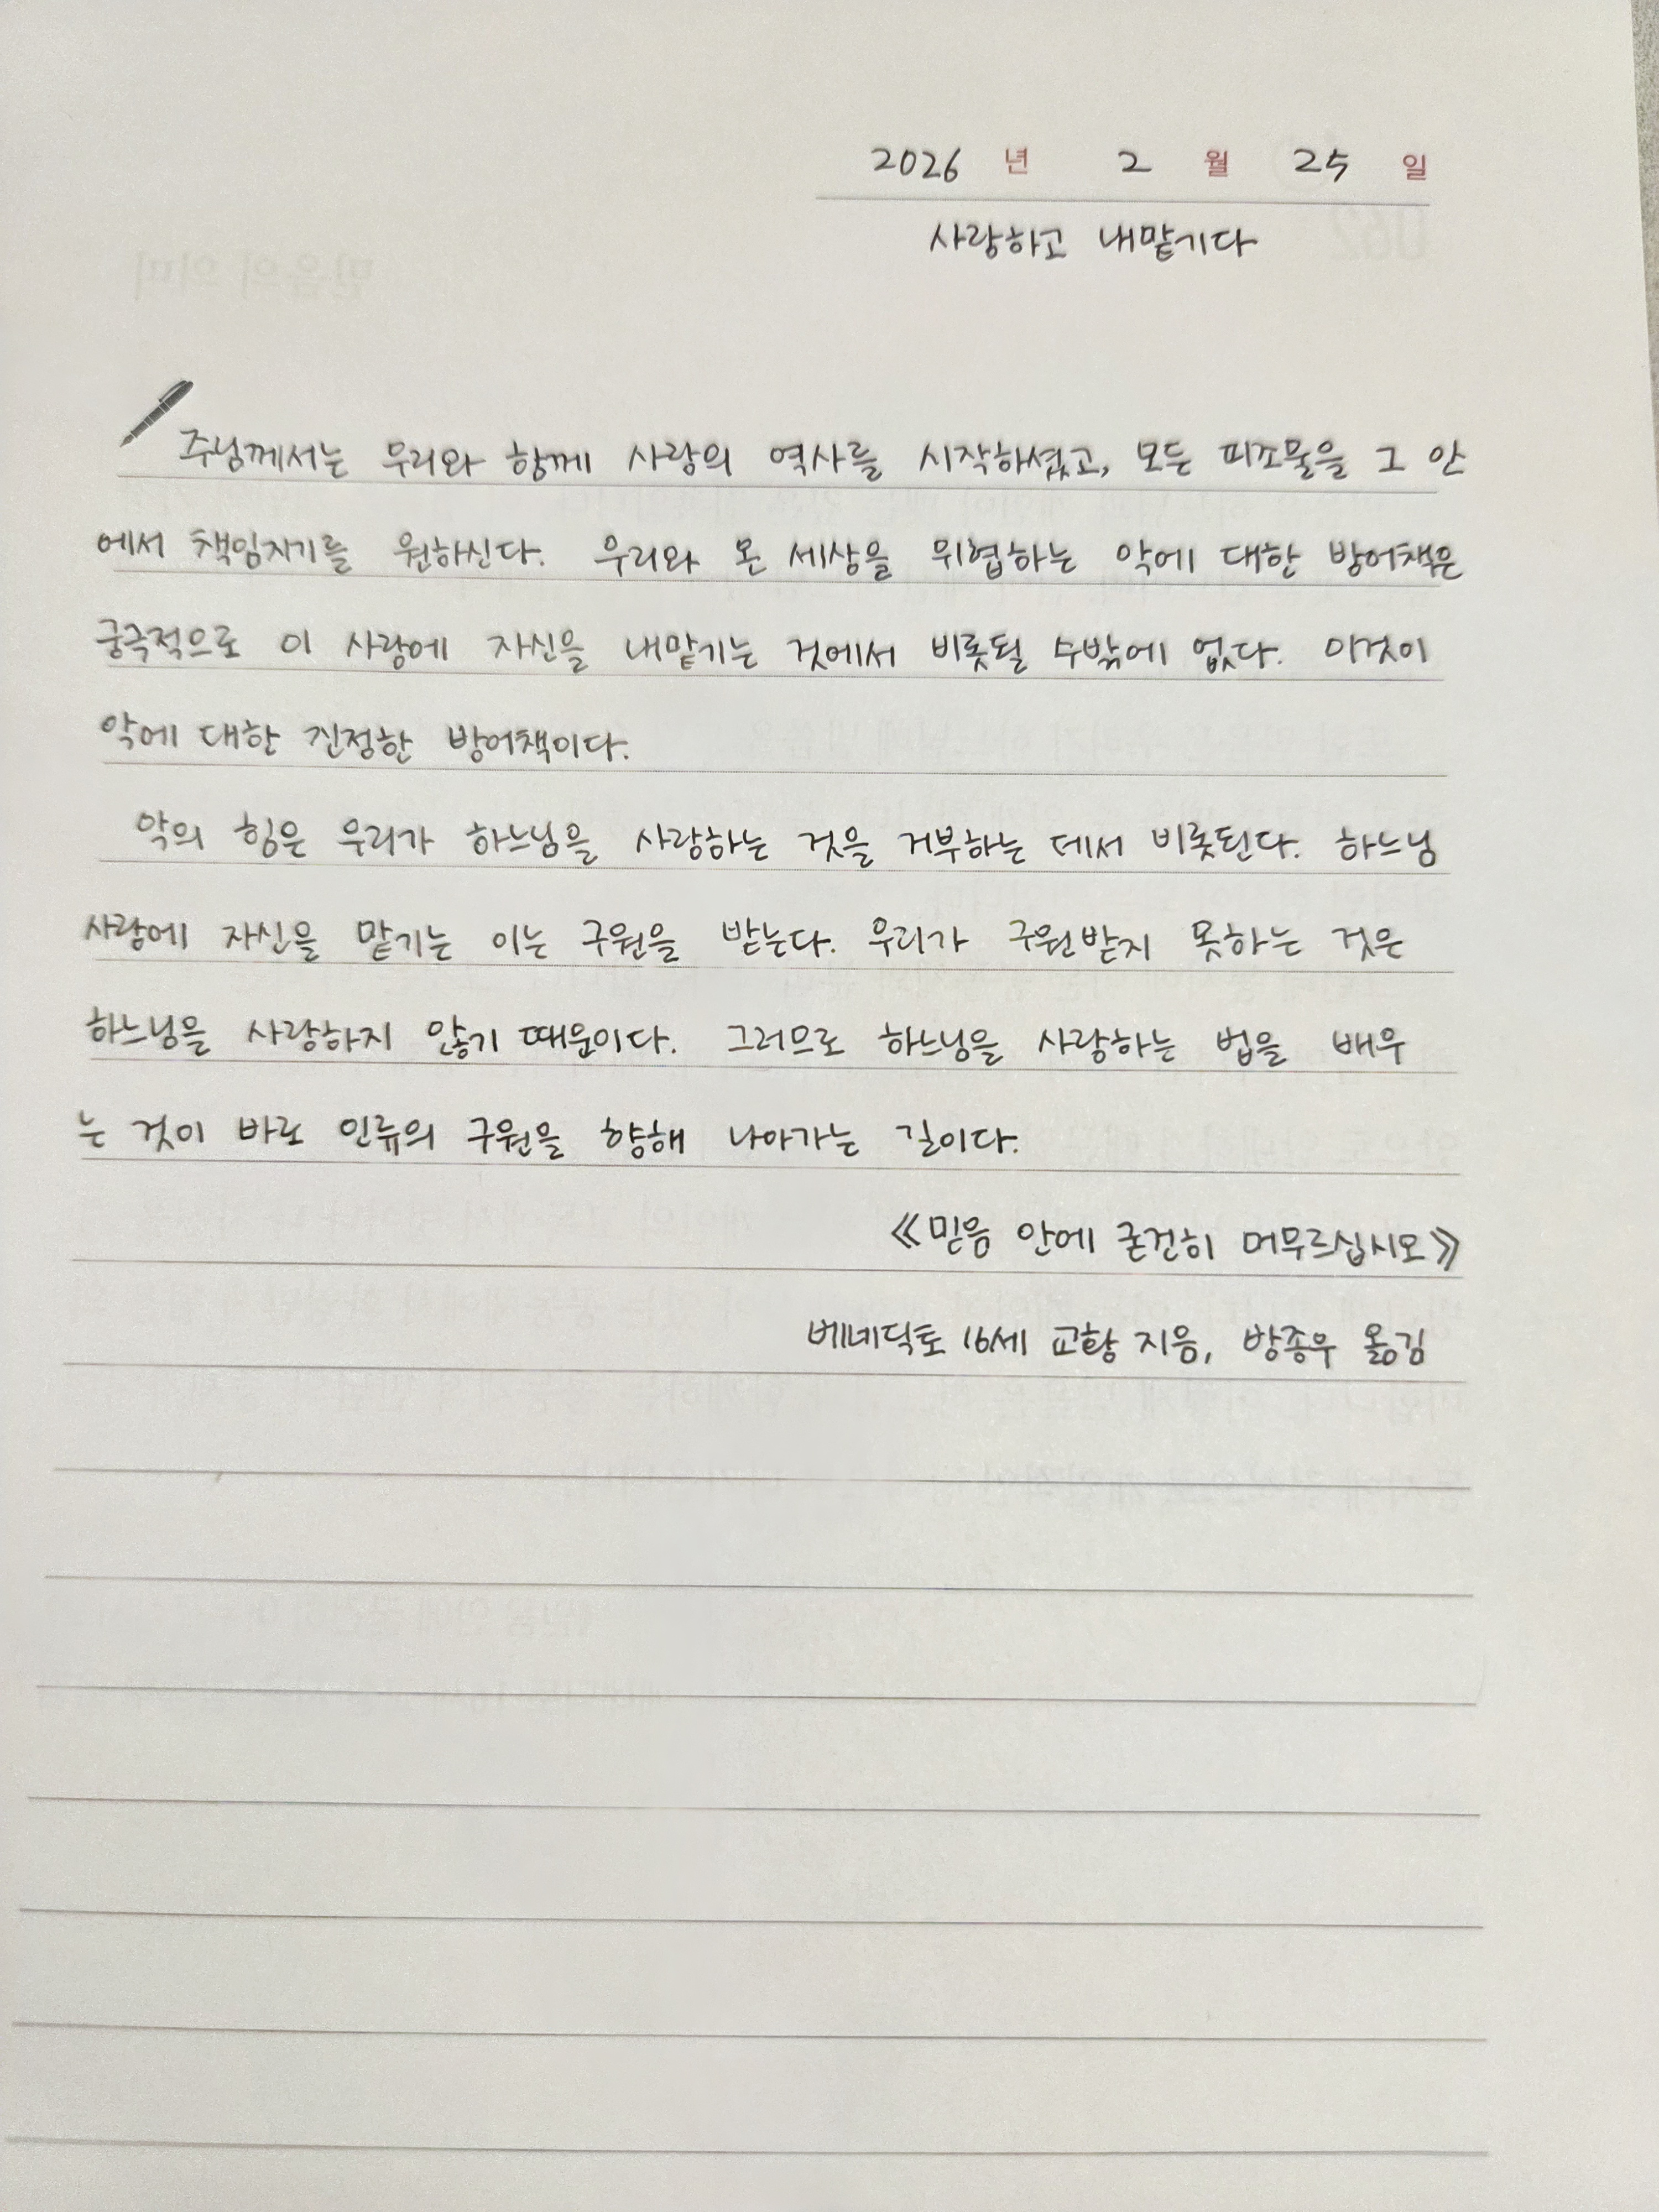 2026 년 2 월 25 일
사랑하고 내맡기다
주님께서는 우리와 함께 사랑의 역사를 시작하셨고, 모든 피조물을 그 안
에서 책임지기를 원하신다. 우리와 온 세상을 위협하는 악에 대한 방어책은
궁극적으로 이 사랑에 자신을 내맡기는 것에서 비롯될 수밖에 없다. 이것이
악에 대한 진정한 방어책이다.
악의 힘은 우리가 하느님을 사랑하는 것을 거부하는 데서 비롯된다. 하느님
사랑에 자신을 맡기는 이는 구원을 받는다. 우리가 구원받지 못하는 것은
하느님을 사랑하지 않기 때문이다. 그러므로 하느님을 사랑하는 법을 배우
는 것이 바로 인류의 구원을 향해 나아가는 길이다.
《믿음 안에 굳건히 머무르십시오》
베네딕토 16세 교황 지음, 방종우 옮김